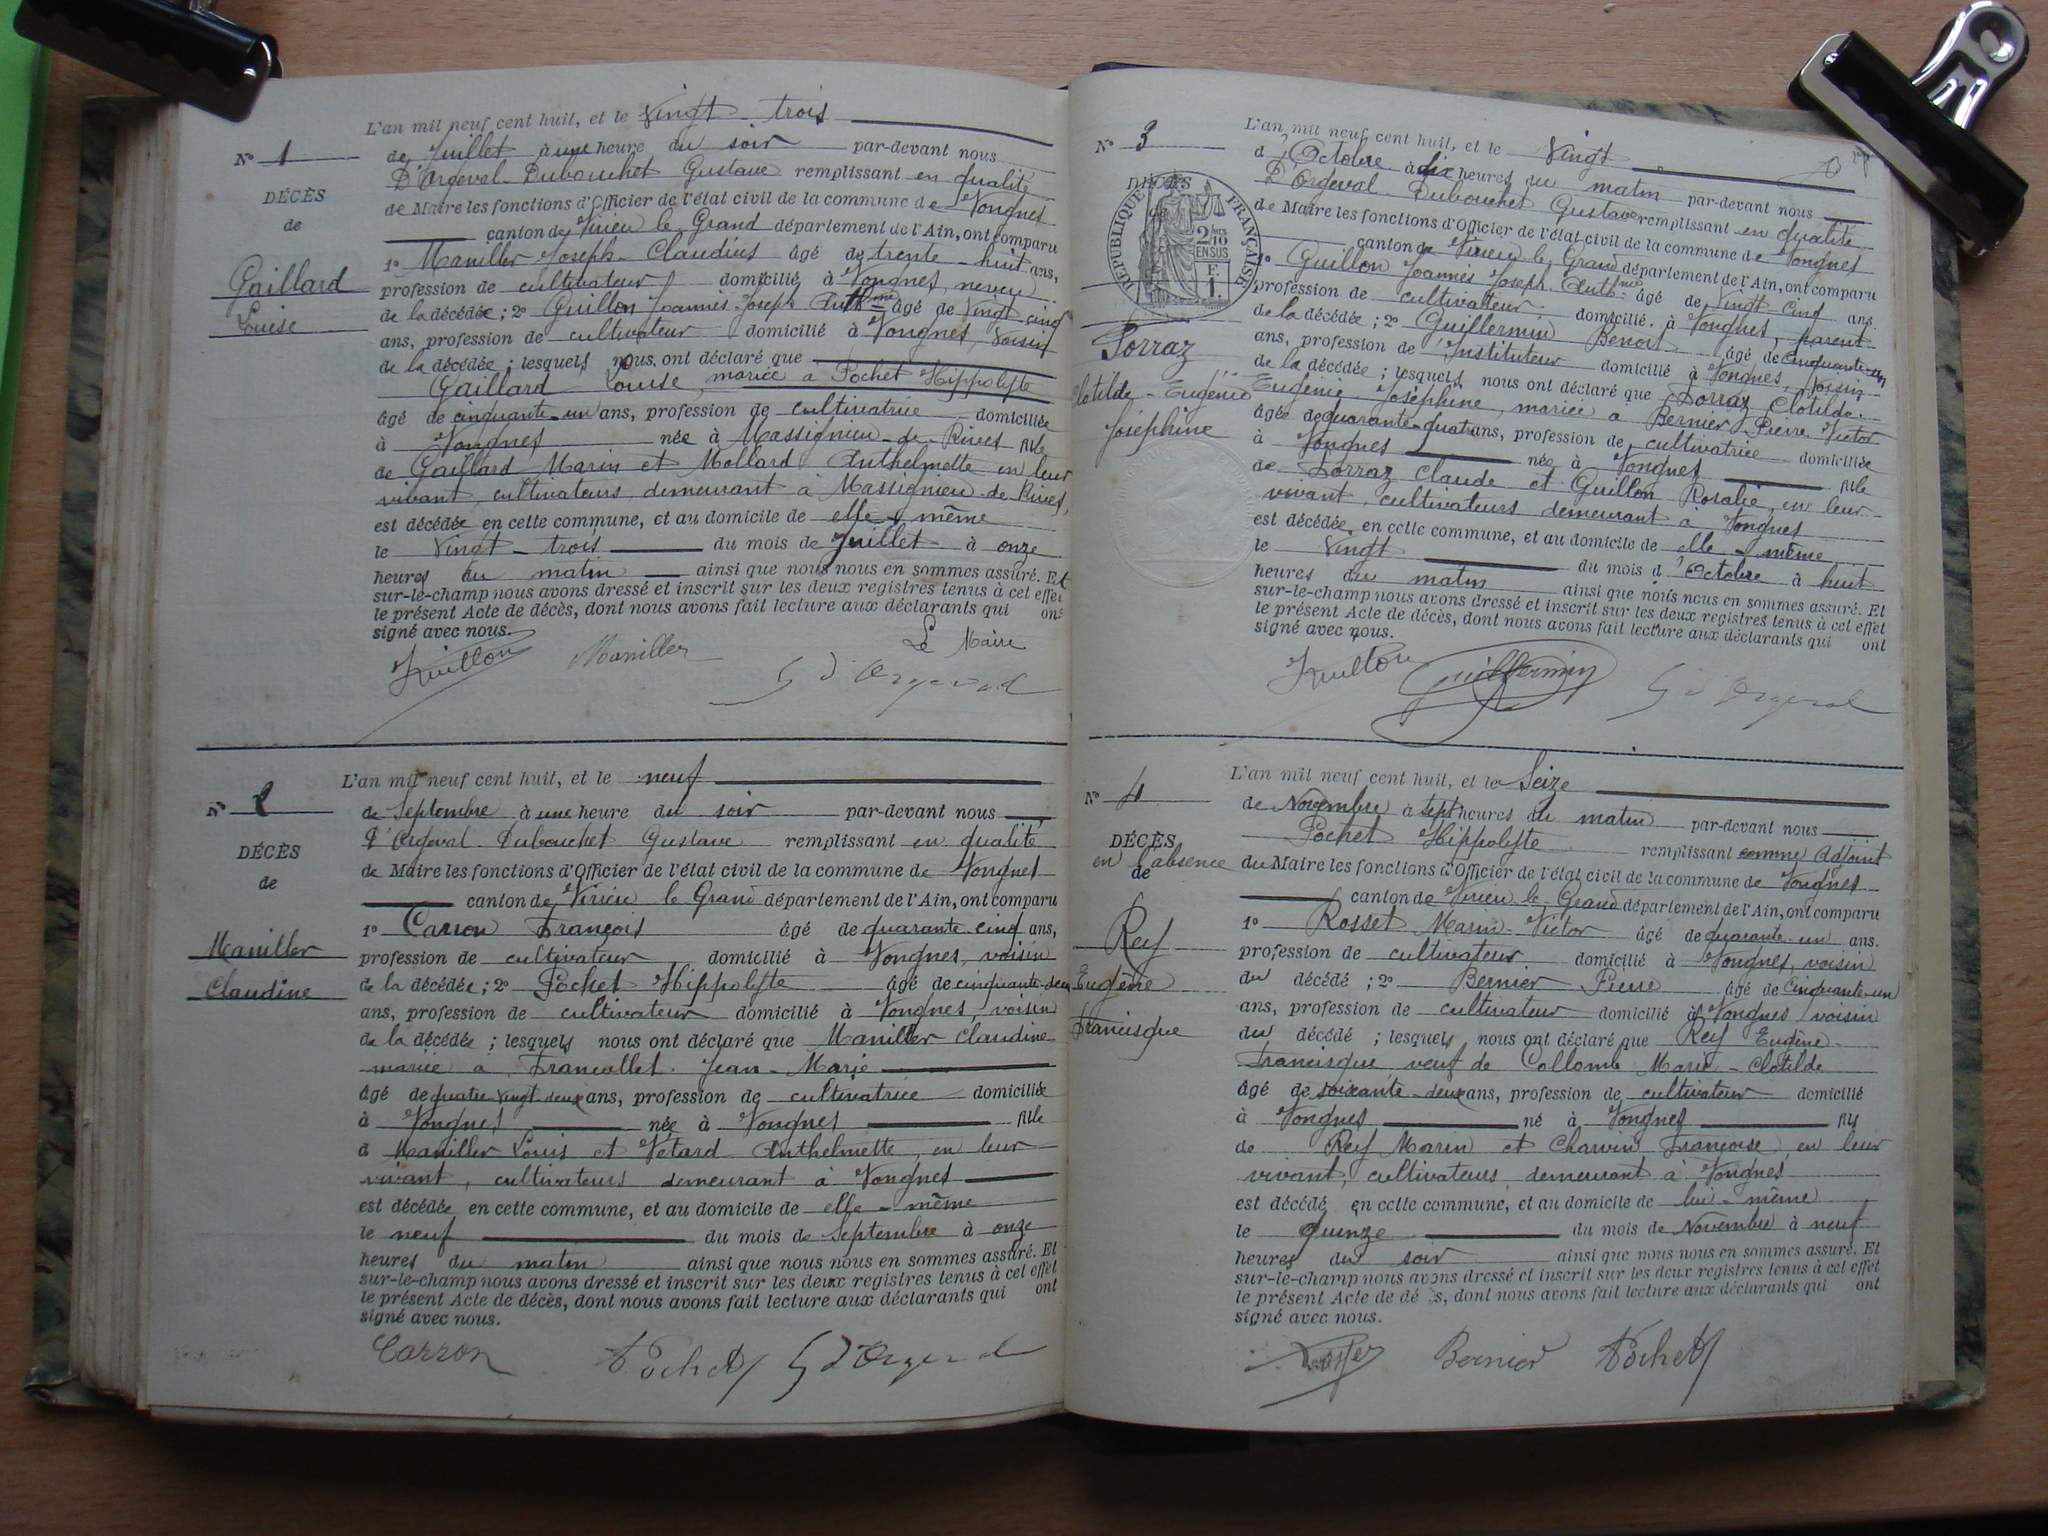 L'an mil neuf cent huit, et le Vingt-trois
N° 1
de Juillet à une heure du soir par-devant nous
D'Orgeval-Dubouchet Gustave remplissant en qualité
DÉCÈS
de Maire les fonctions d'Officier de l'état civil de la commune de Vongnes
de
canton de Virieu le Grand département de l'Ain, ont comparu
1° Maniller Joseph-Claudius âgé de trente-huit ans,
Gaillard
profession de cultivateur domicilié à Vongnes, neveu
Louise
de la décédée; 2° Guillon Joannès Joseph Anthme âgé de Vingt-cinq
ans, profession de cultivateur domicilié à Vongnes, Voisin
de la décédée; lesquels nous ont déclaré que
Gaillard Louise, mariée à Pochet Hippolyte
âgé de cinquante-un ans, profession de cultivatrice domiciliée
à Vongnes née à Massignieu-de-Rives fille
de Gaillard Marin et Mollard Anthelmette en leur
vivant, cultivateurs, demeurant à Massignieu-de-Rives,
est décédée en cette commune, et au domicile de elle-même
le Vingt-trois du mois de Juillet à onze
heures du matin ainsi que nous nous en sommes assuré. Et
sur-le-champ nous avons dressé et inscrit sur les deux registres tenus à cet effet
le présent Acte de décès, dont nous avons fait lecture aux déclarants qui ont
signé avec nous.
Le Maire
Guillon Maniller G d'Orgeval
L'an mil neuf cent huit, et le neuf
N° 2
de Septembre à une heure du soir par-devant nous
D'Orgeval-Dubouchet Gustave remplissant en qualité
DÉCÈS
de Maire les fonctions d'Officier de l'état civil de la commune de Vongnes
de
canton de Virieu le Grand département de l'Ain, ont comparu
1° Carron François âgé de quarante-cinq ans,
Maniller
profession de cultivateur domicilié à Vongnes, voisin
Claudine
de la décédée; 2° Pochet Hippolyte âgé de cinquante-deux
ans, profession de cultivateur domicilié à Vongnes, voisin
de la décédée; lesquels nous ont déclaré que Maniller Claudine
mariée à Francollet Jean-Marie
âgé de quatre vingt deux ans, profession de cultivatrice domiciliée
à Vongnes née à Vongnes fille
d Maniller Louis et Vétard Anthelmette, en leur
vivant, cultivateurs demeurant à Vongnes
est décédée en cette commune, et au domicile de elle-même
le neuf du mois de Septembre à onze
heures du matin ainsi que nous nous en sommes assuré. Et
sur-le-champ nous avons dressé et inscrit sur les deux registres tenus à cet effet
le présent Acte de décès, dont nous avons fait lecture aux déclarants qui ont
signé avec nous.
Carron Pochet G d'Orgeval
L'an mil neuf cent huit, et le Vingt
N° 3
d'Octobre à dix heures du matin par-devant nous
D'Orgeval Dubouchet Gustave remplissant en qualité
DÉCÈS
RÉPUBLIQUE FRANÇAISE
2/10 EN SUS
F. 1
de Maire les fonctions d'Officier de l'état civil de la commune de Vongnes
canton de Virieu le Grand département de l'Ain, ont comparu
1° Guillon Joannès Joseph Anthme âgé de Vingt-cinq ans
profession de cultivateur domicilié à Vongnes, parent
de la décédée; 2° Guillermin Benoit âgé de cinquante-un
Sorraz
Clotilde-Eugénie
Joséphine
ans, profession de Instituteur domicilié à Vongnes, Voisin
de la décédée; lesquels nous ont déclaré que Sorraz Clotilde
Eugénie Joséphine, mariée à Bernier Pierre Victor
âgée de quarante-quatre ans, profession de cultivatrice domiciliée
à Vongnes née à Vongnes fille
de Sorraz Claude et Guillon Rosalie, en leur
vivant, cultivateurs demeurant à Vongnes
est décédée en cette commune, et au domicile de elle-même
le Vingt du mois d'Octobre à huit
heures du matin ainsi que nous nous en sommes assuré. Et
sur-le-champ nous avons dressé et inscrit sur les deux registres tenus à cet effet
le présent Acte de décès, dont nous avons fait lecture aux déclarants qui ont
signé avec nous.
Guillon Guillermin G d'Orgeval
L'an mil neuf cent huit, et le Seize
N° 4
de Novembre à sept heures du matin par-devant nous
Pochet Hippolyte remplissant comme adjoint
DÉCÈS
en l'absence du Maire les fonctions d'Officier de l'état civil de la commune de Vongnes
de
canton de Virieu le Grand département de l'Ain, ont comparu
1° Rosset Marin-Victor âgé de quarante-un ans.
Rey
profession de cultivateur domicilié à Vongnes, voisin
Eugène
du décédé; 2° Bernier Pierre âgé de cinquante-un
ans, profession de cultivateur domicilié à Vongnes voisin
Francisque
du décédé; lesquels nous ont déclaré que Rey Eugène
Francisque veuf de Collomb Marie-Clotilde
âgé de soixante-deux ans, profession de cultivateur domicilié
à Vongnes né à Vongnes fils
de Rey Marin et Charvin Françoise, en leur
vivant, cultivateurs, demeurant à Vongnes
est décédé en cette commune, et au domicile de lui-même
le quinze du mois de Novembre à neuf
heures du soir ainsi que nous nous en sommes assuré. Et
sur-le-champ nous avons dressé et inscrit sur les deux registres tenus à cet effet
le présent Acte de décès, dont nous avons fait lecture aux déclarants qui ont
signé avec nous.
Bernier Pochet